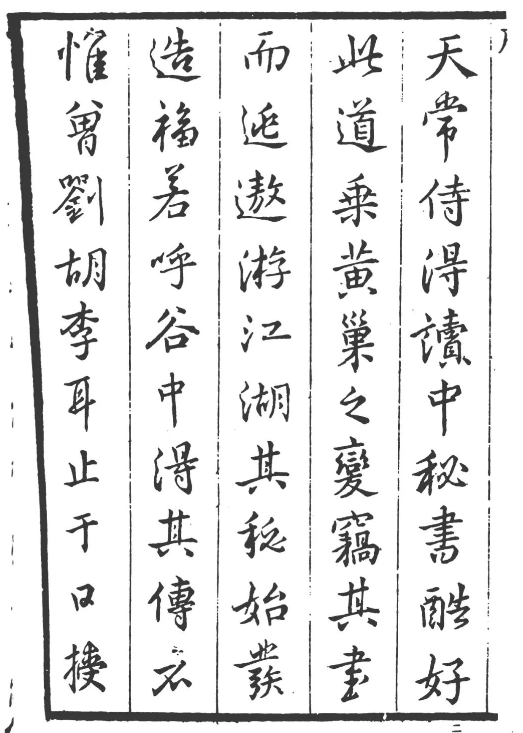 天常侍得讀中秘書酷好
此道乗黄巢之變竊其書
而逃遨游江湖其秘始發
造福若呼谷中得其傳者
惟曾劉胡李耳止于口授